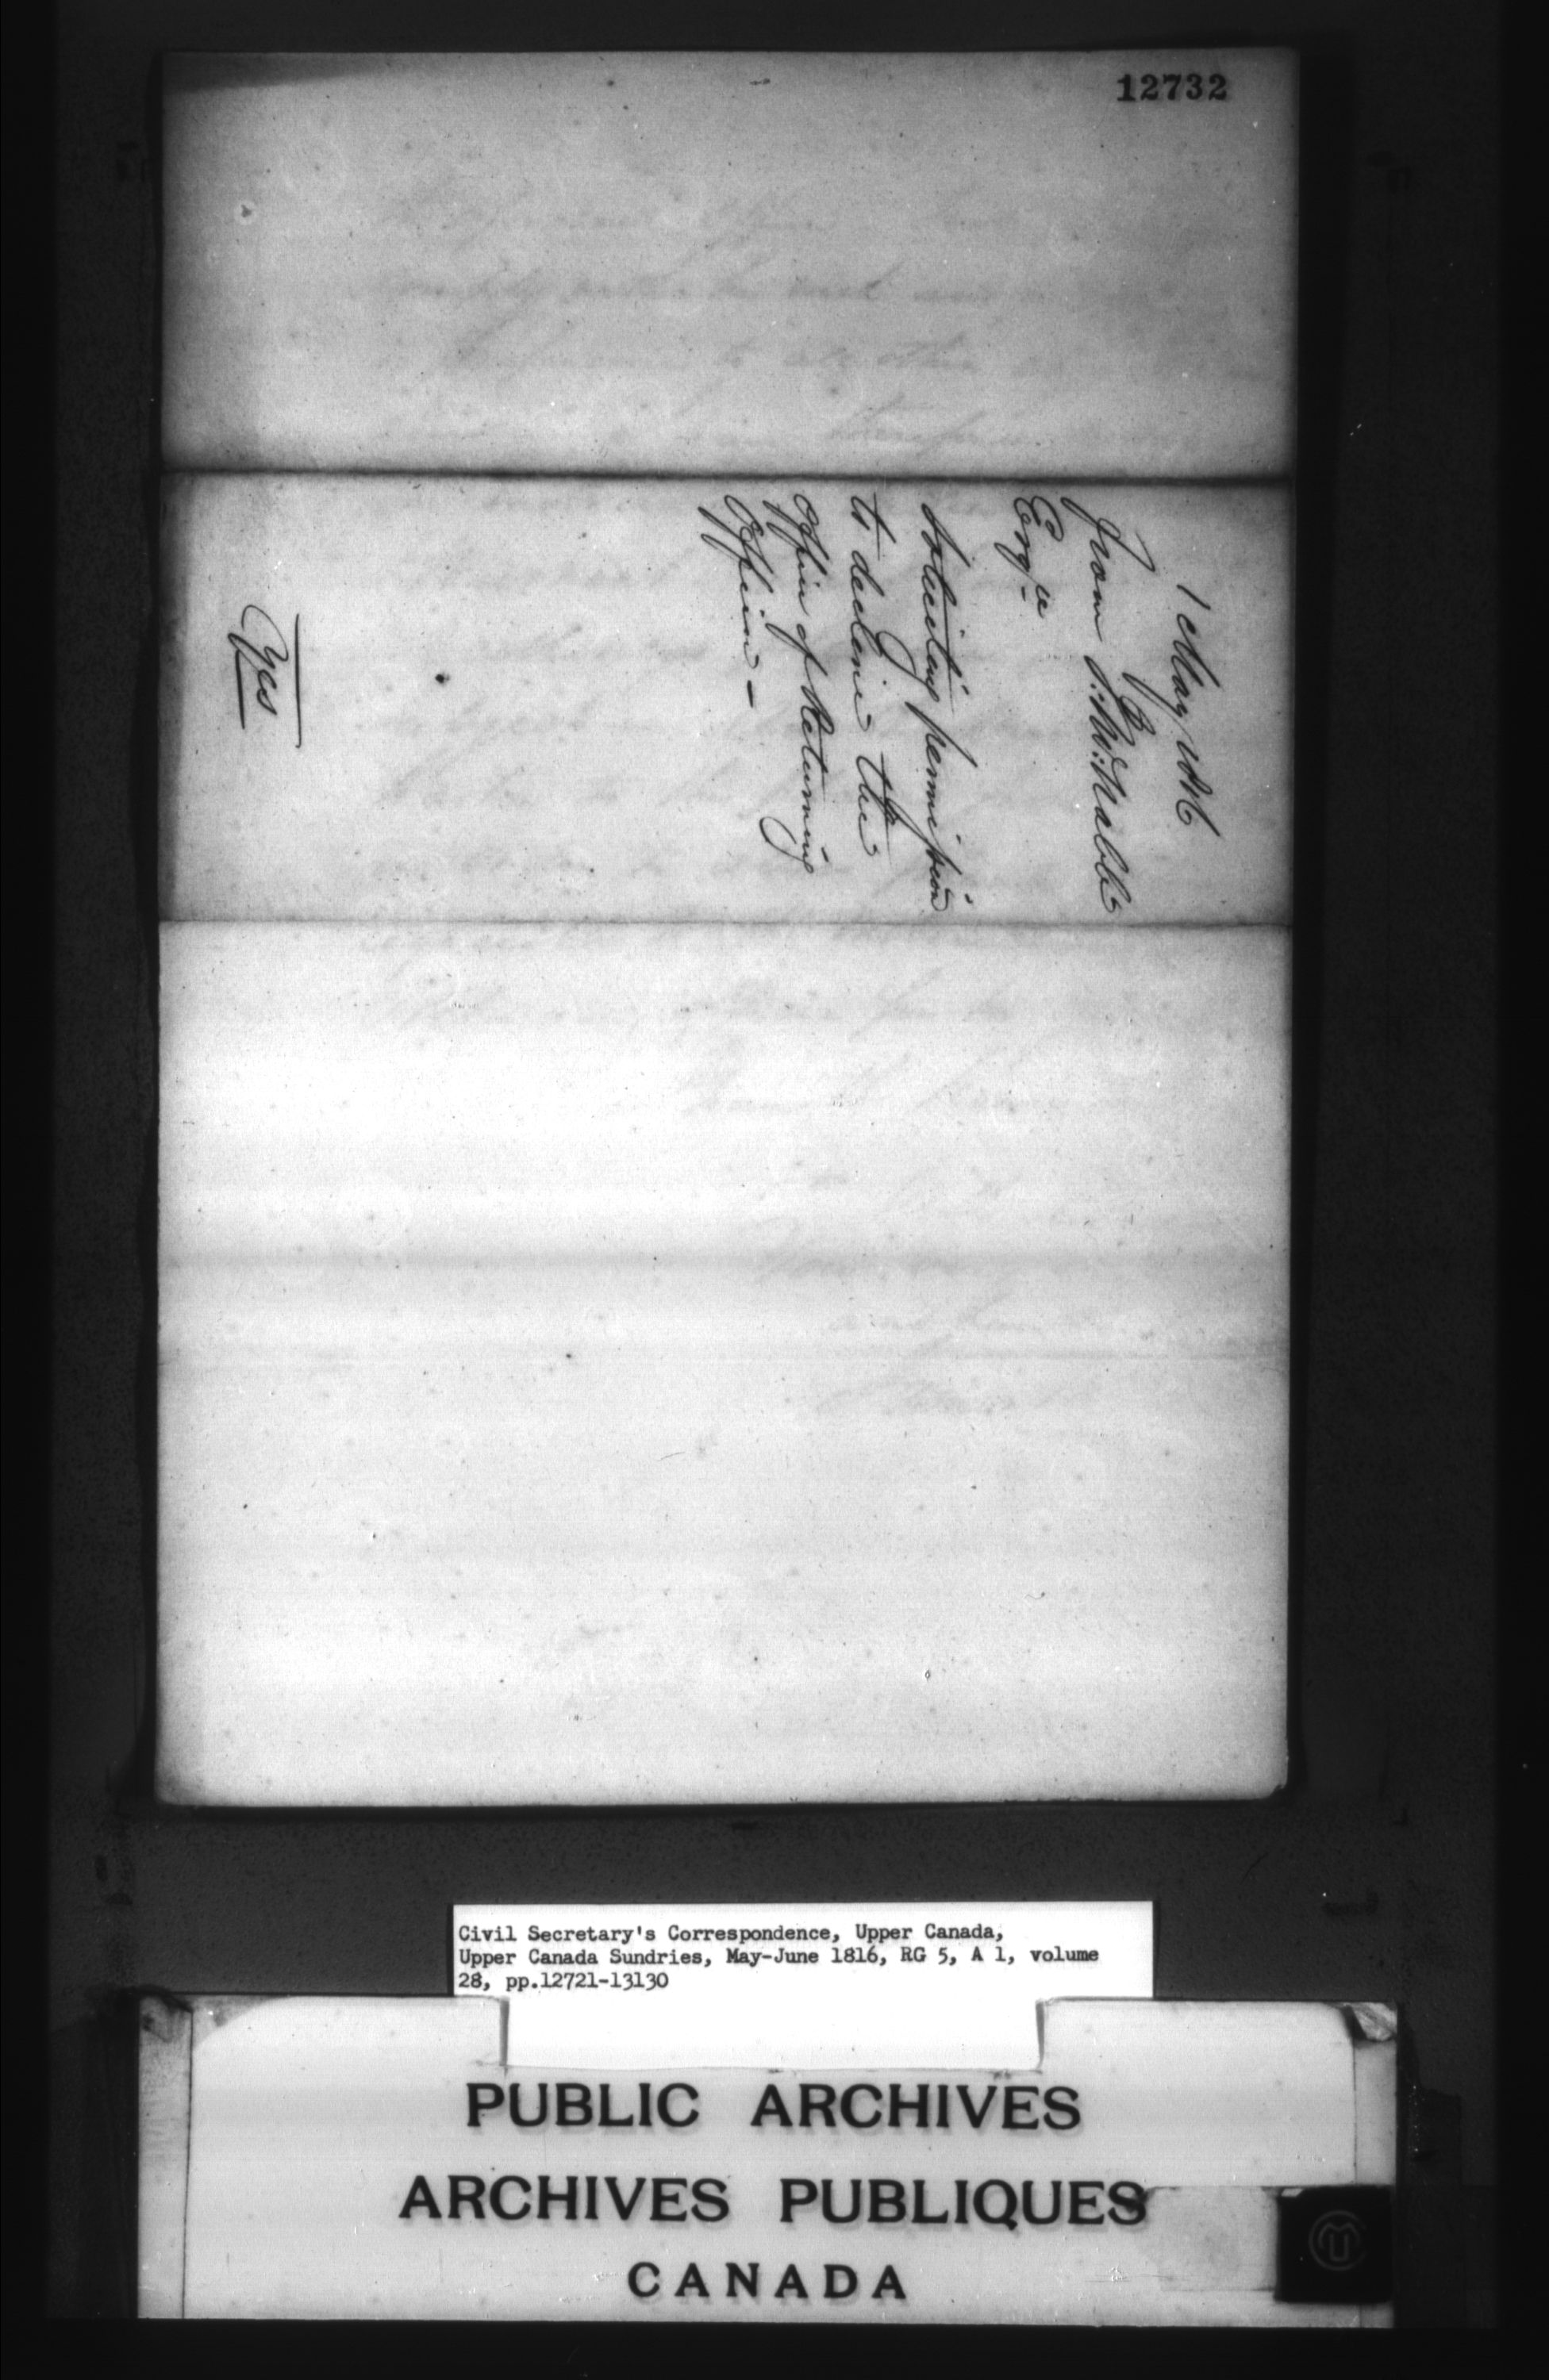 12732
1 May 1816
From S: McNabb
Esqre
soliciting permission
to decline the
Office of Returning
Officer —
Yes
Civil Secretary's Correspondence, Upper Canada,
Upper Canada Sundries, May-June 1816, RG 5, A 1, volume
28, pp.12721-13130
PUBLIC ARCHIVES
ARCHIVES PUBLIQUES
CANADA